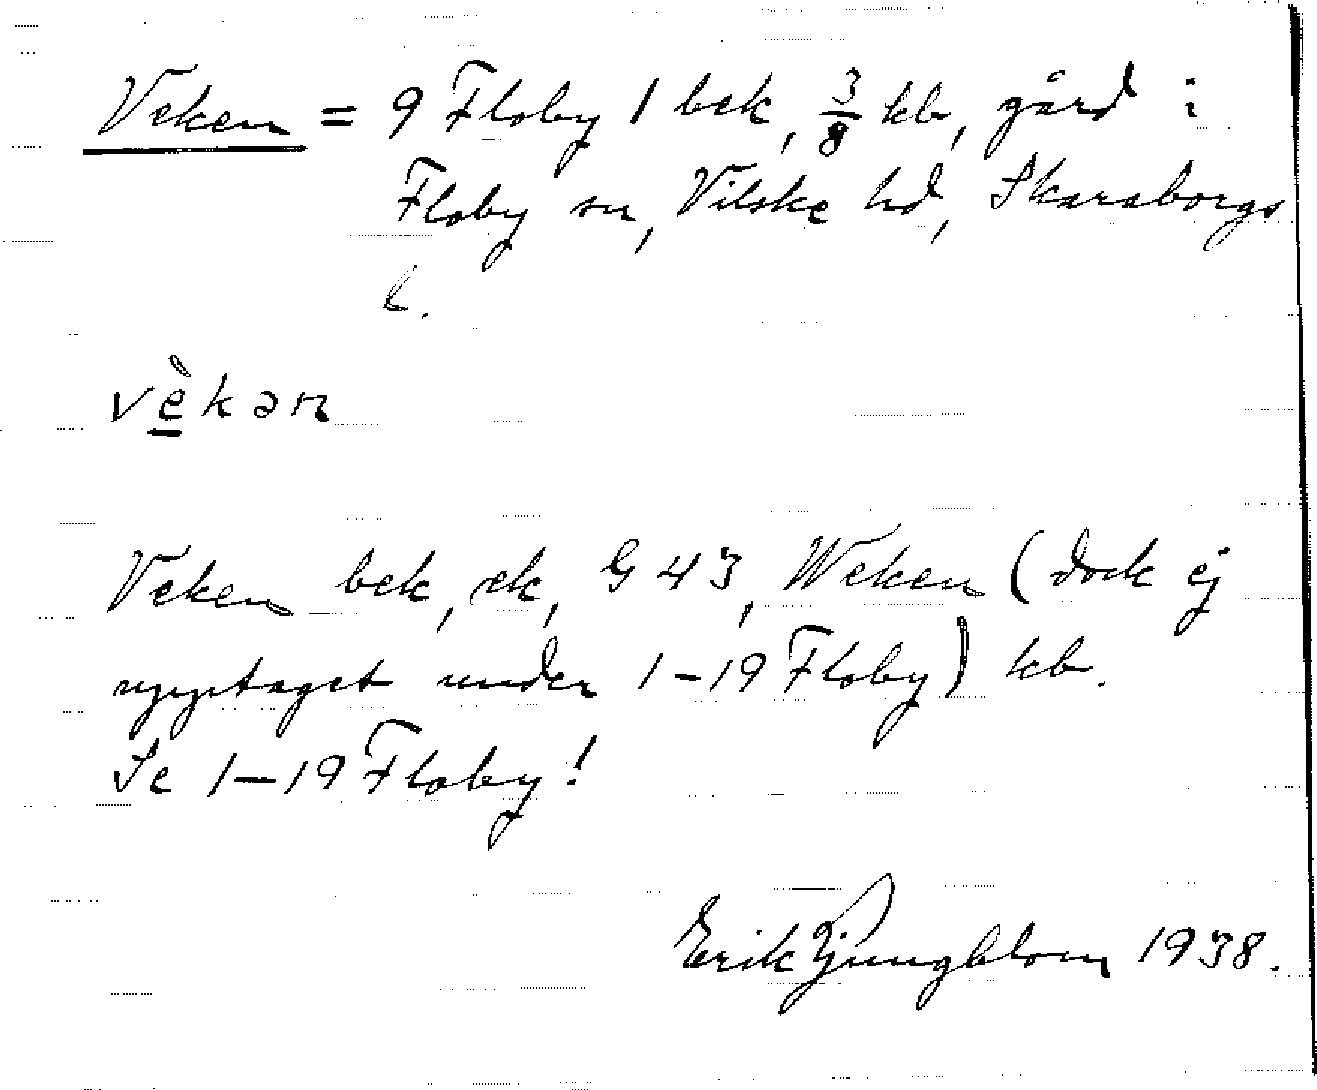 Veken = 9 Floby 1 bek, 3/8 kb, gård i
Floby sn, Vilske hd, Skaraborgs
l.
vèkən
Veken bek, ek, G 43, Weken (dock ej
upptaget under 1-19 Floby) kb.
Se 1-19 Floby!
Erik Ljungblom 1938.